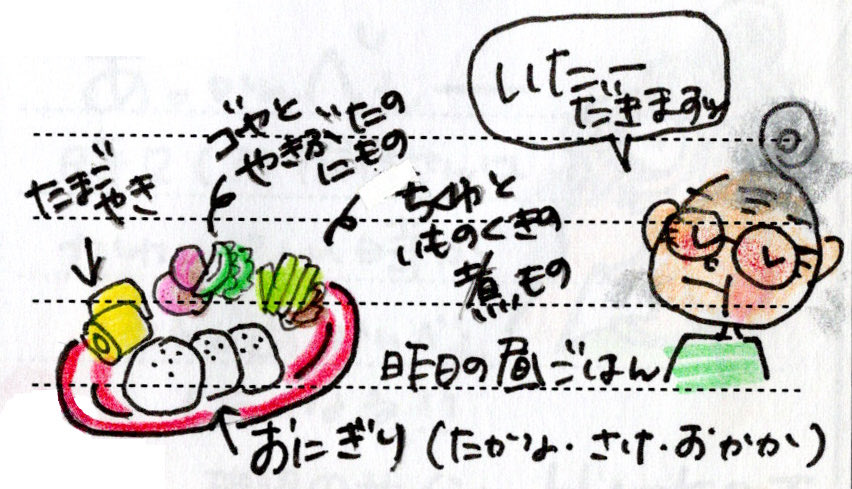 いたー
だきますッ
たまご
やき
ゴーヤと
やきぶたの
にもの
ちくわと
いものくきの
煮もの
昨日の昼ごはん
おにぎり（たかな・さけ・おかか）